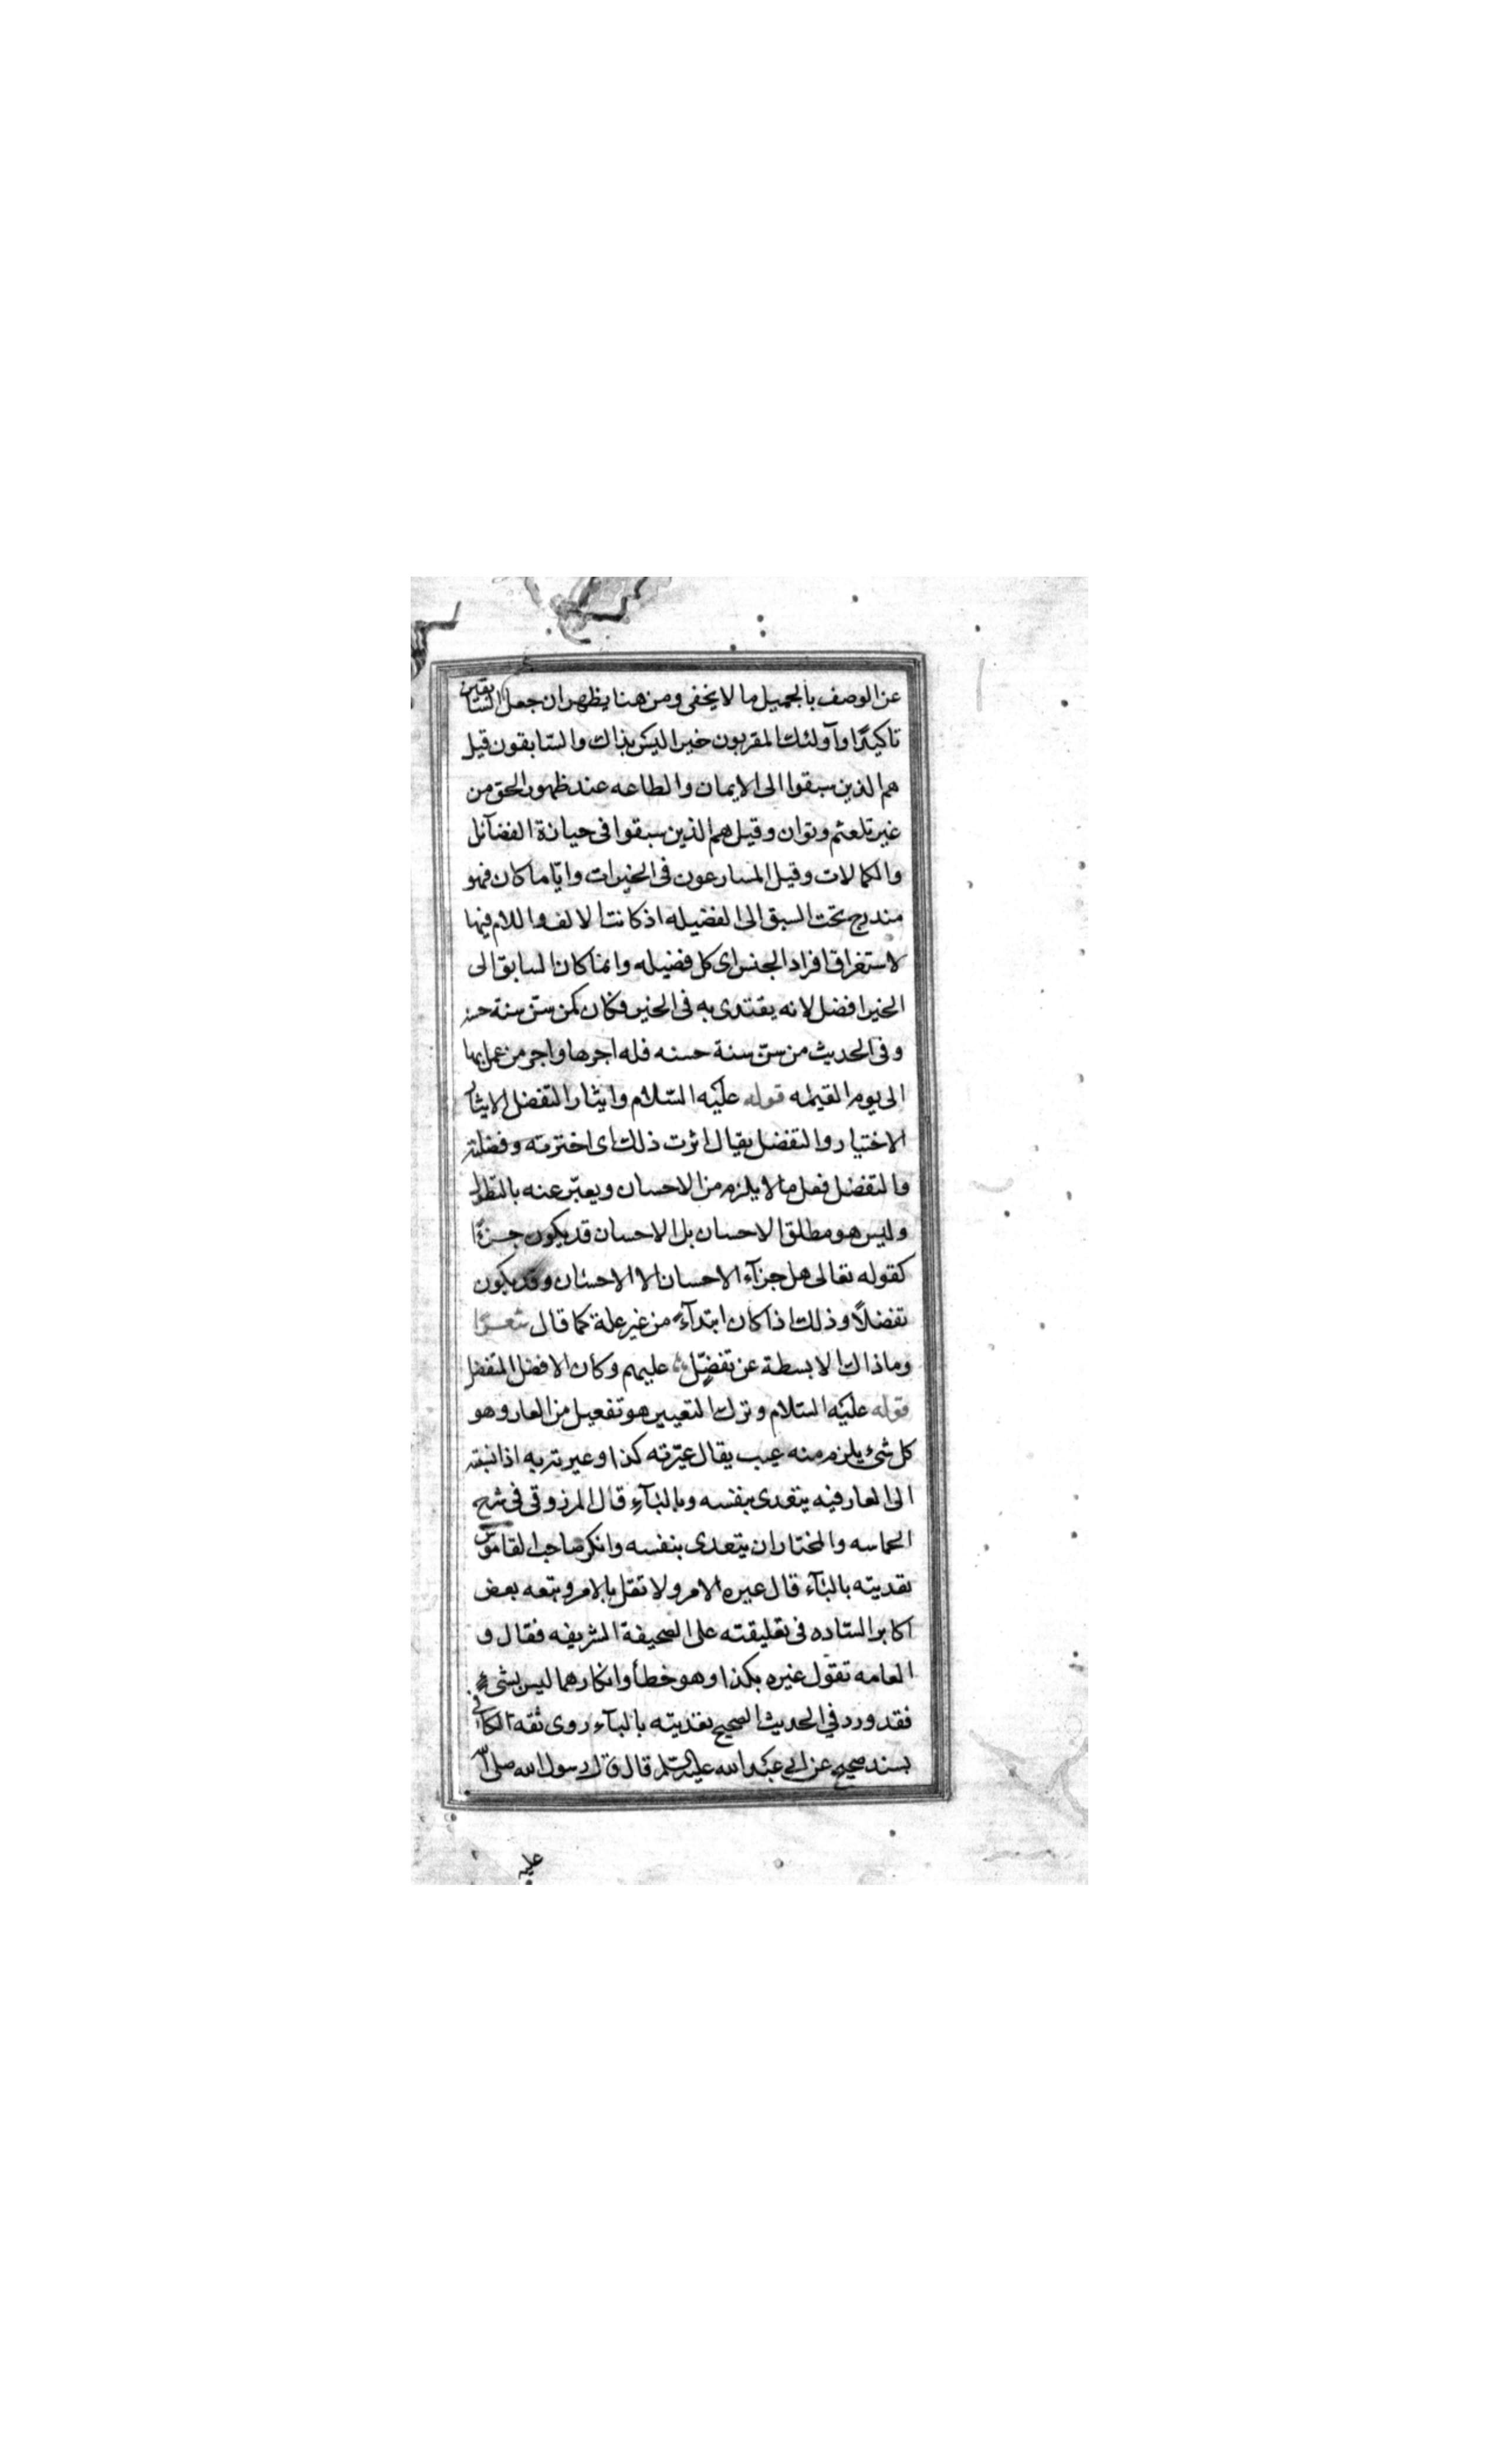 عن الوصف بالجميل ما لا يخفى ومن هنا يظهر ان جعل السابقين
تاكيدًا واولئك المقربون خبرا ليس بذاك والسّابقون قيل
هم الذين سبقوا الى الايمان والطاعه عند ظهور الحق من
غير تلعثم وتوان وقيل هم الذين سبقوا فى حيازة الفضآئل
والكمالات وقيل المسارعون فى الخيرات وايّا ما كان فهو
مندرج تحت السبق الى الفضيله اذ كانت الالف واللام فيها
لاستغراق افراد الجنس اى كل فضيله وانما كان السابق الى
الخير افضل لانه يقتدى به فى الخير فكان كمن سنّ سنة حسنه
وفى الحديث من سنّ سنة حسنه فله اجرها واجر من عمل بها
الى يوم القيمه قوله عليه السّلام وايثار التفضل الايثار
الاختيار والتفضل يقال اثرت ذلك اى اخترته وفضلته
والتفضل فعل ما لا يلزم من الاحسان ويعبّر عنه بالتطول
وليس هو مطلق الاحسان بل الاحسان قد يكون جزآءً
كقوله تعالى هل جزآء الاحسان الا الاحسان وقد يكون
تفضلاً وذلك اذا كان ابتدآءً من غير علة كما قال شعرًا
وما ذاك الا بسطة عن تفضّلٍ عليهم وكان الافضل المتفضل
قوله عليه السّلام وترك التعيير هو تفعيل من العار وهو
كل شئ يلزم منه عيب يقال عيّرته كذا وعيرته به اذا نسبته
الى العار فيه يتعدى بنفسه وبالبآء قال المرزوقى فى شرح
الحماسه والمختار ان يتعدى بنفسه وانكر صاحب القاموس
تعديته بالبآء قال عيره الامر ولا تقل بالامر وتبعه بعض
اكابر السّاده فى تعليقته على الصحيفة الشريفه فقال و
العامه تقول عيره بكذا وهو خطأ وانكارهما ليس بشئ
فقد ورد في الحديث الصحيح تعديته بالبآء روى ثقة الكافي
بسند صحيح عن ابي عبد الله عليه السّلم قال قال رسول الله صلى الله
عليه